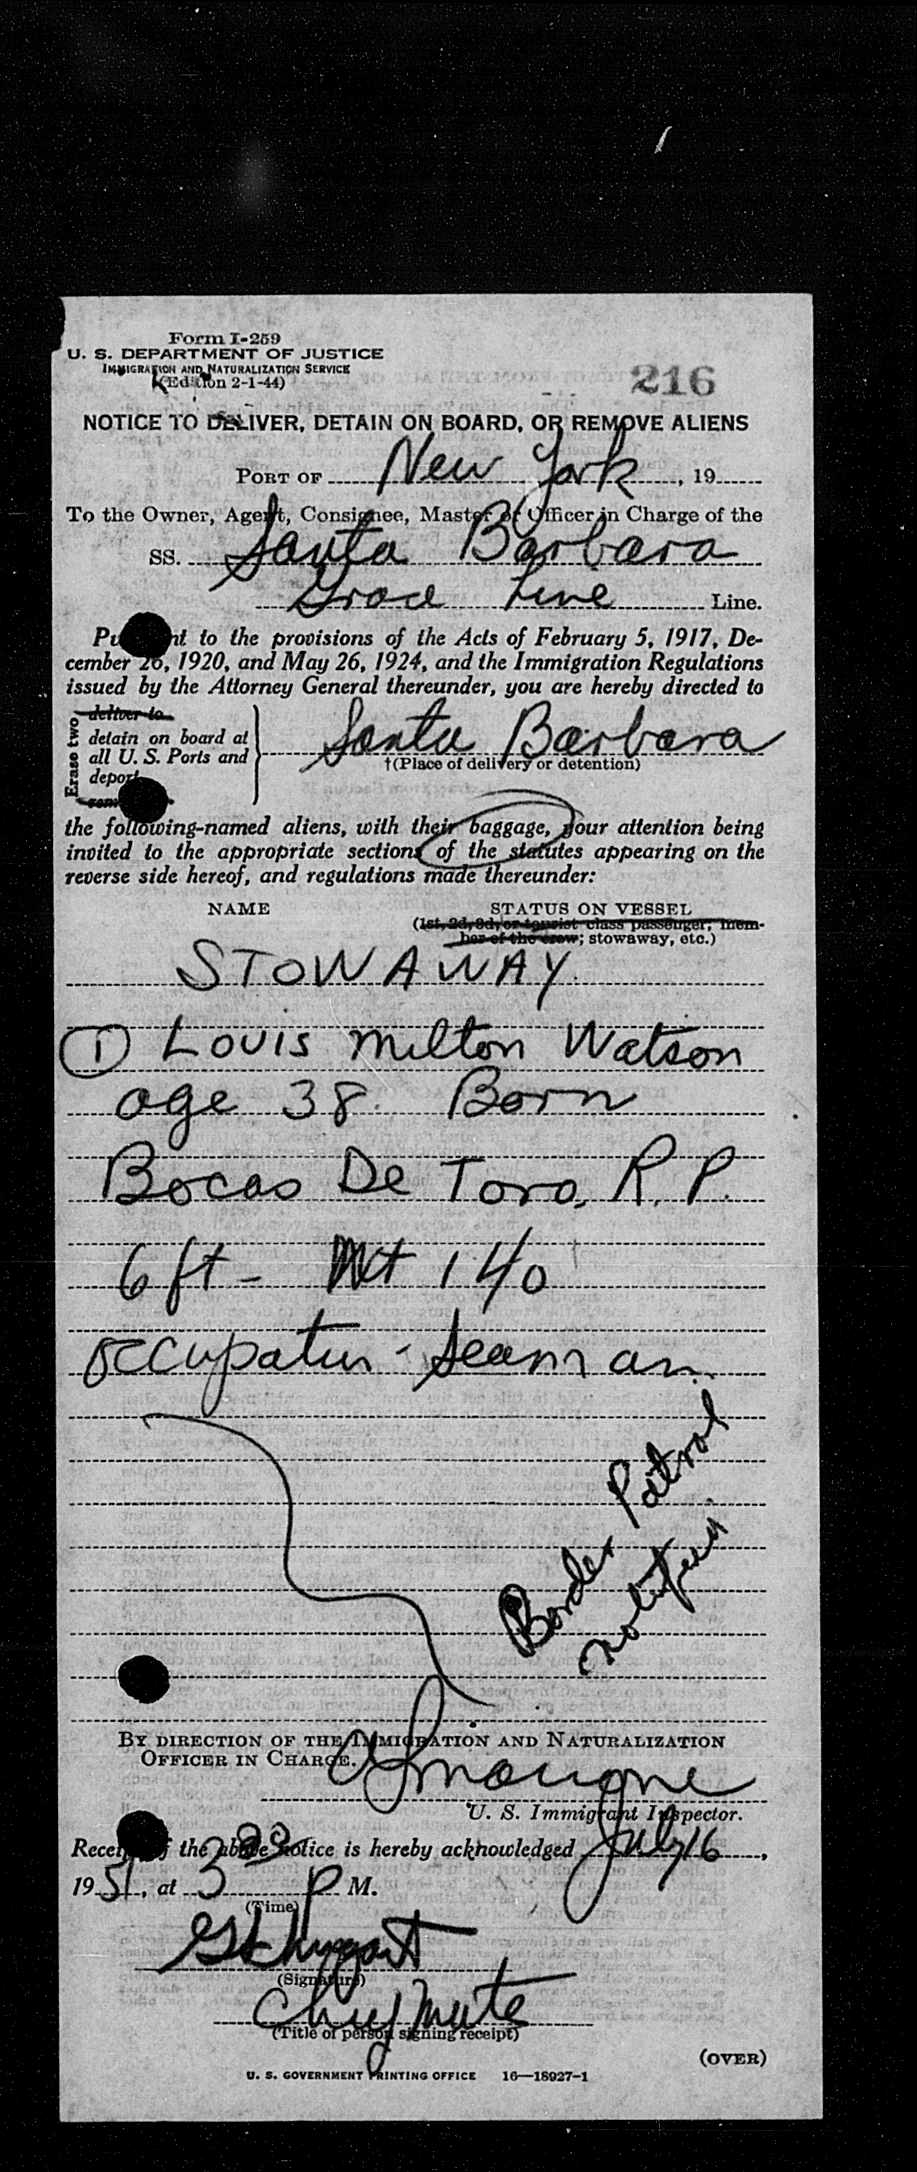 Form I-259
U. S. DEPARTMENT OF JUSTICE
IMMIGRATION AND NATURALIZATION SERVICE
(Edition 2-1-44)
216
NOTICE TO DELIVER, DETAIN ON BOARD, OR REMOVE ALIENS
PORT OF New York, 19
To the Owner, Agent, Consignee, Master or Officer in Charge of the
SS. Santa Barbara
Grace Line Line.
Pursuant to the provisions of the Acts of February 5, 1917, De-
cember 26, 1920, and May 26, 1924, and the Immigration Regulations
issued by the Attorney General thereunder, you are hereby directed to
Erase two
deliver to
detain on board at
all U. S. Ports and
deport
Santa Barbara
†(Place of delivery or detention)
the following-named aliens, with their baggage, your attention being
invited to the appropriate sections of the statutes appearing on the
reverse side hereof, and regulations made thereunder:
NAME STATUS ON VESSEL
(1st, 2d, 3d, or tourist class passenger; mem-
ber of the crew; stowaway, etc.)
STOWAWAY.
① Louis Milton Watson
age 38. Born
Bocas De Toro, R. P.
6 ft - Wt 140
occupation - Seaman.
Border Patrol
BY DIRECTION OF THE IMMIGRATION AND NATURALIZATION
OFFICER IN CHARGE.
U. S. Immigrant Inspector.
Receipt of the above notice is hereby acknowledged July 16,
19 51, at 3 30 P M.
(Time)
(Signature)
Chief Mate
(Title of person signing receipt)
(OVER)
U. S. GOVERNMENT PRINTING OFFICE 16—18927-1